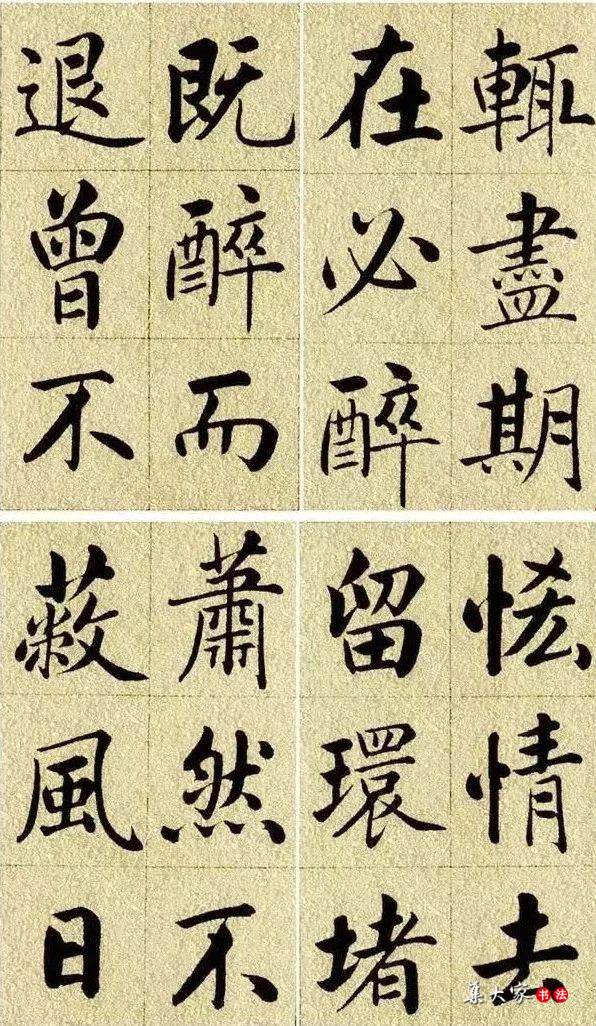 輒盡期
在必醉
既醉而
退曾不
恡情去
留環堵
蕭然不
蔽風日
集大家书法